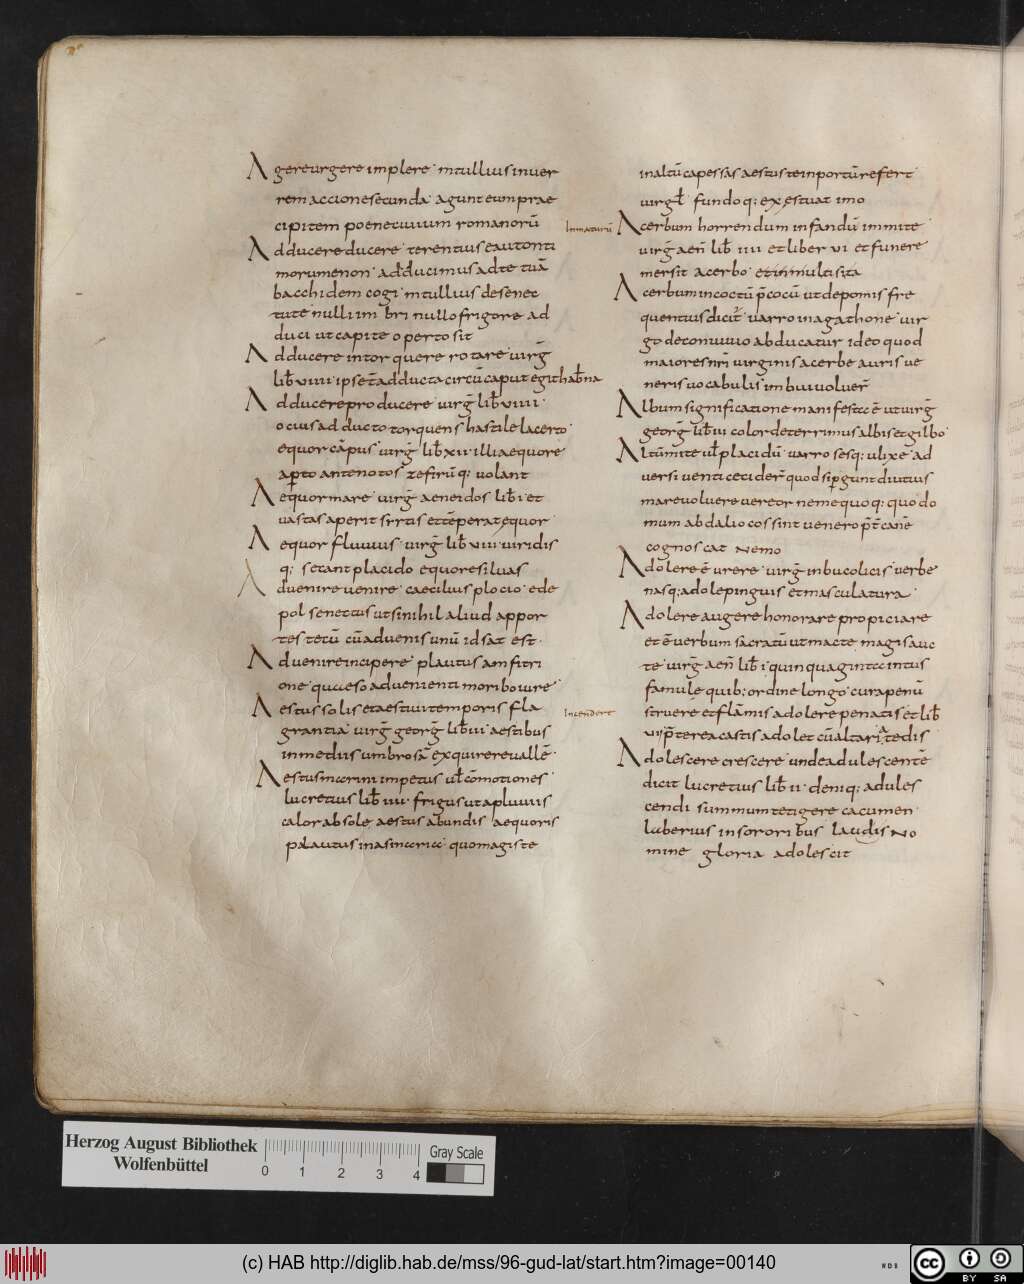 Agere urgere implere· m tullius in ver
rem accione secunda· agunt eum prae
cipitem poene civium romanorū
Adducere ducere· terentius eautonti
morumenon· adducimus ad te tuā
bacchidem cogi· m tullius de senec
tute nulli im bri nullo frigore ad
duci ut capite operto sit
Adducere intorquere rotare· virḡ
lib̄ viiii· ipse t̄ adducta circū caput egit hab̄na
Adducere producere· virḡ lib̄ viiii·
ocius adducto torquens hastile lacerto·
equor cāpus· virḡ lib̄ xii· illi aequore
aꝑto ante notos zefirūq: volant
Aequor mare· virḡ aeneidos lib̄ i· et
vastas aperit syrtis et tēperat equor·
Aequor fluvius· virḡ lib̄ viii· viridis
q: secant placido equore silvas
Advenire venire· caecilius plocio· ede
pol senectus ut si nihil aliud appor
tes tecū cū advenis unū id sat est·
Advenire incipere· plautus amfitri
one· quaeso advenienti morbo iure·
Aestus solis et aestivi temporis fla
grantia· virḡ georḡ lib̄ iii· aestibus
in mediis umbrosā exquirere vallē·
Aestus marini impetus ul̄ cōmotiones·
lucretius lib̄ iiii· frigus ut a pluviis
calor ab sole· aestus ab undis aequoris
plautus in asinaria· quom magis te
in altū capessas aestus te in portū refert·
virgl̄ fundoq: exestuat imo
Immaturū
Acerbum horrendum infandū immite·
virḡ aen̄ lib̄ iiii· et liber vi· et funere
mersit acerbo· et in multis ita
Acerbum incoctū p̄cocū ut de pomis fre
quentius dicit̄· varro in agathone· vir
go de convivio abducatur ideo quod
maiores nr̄i virginis acerbe auris ve
neris vocabulis imbui voluer̄
Album significatione manifesta ē ut virḡ
georḡ lib̄ iii· color deterrimus albis et gilbo·
Altū mite ul̄ placidū· varro sesq: ulixe· ad
versi venti cecider̄ quod si ꝑgunt diutius
mare volvere vereor ne me quoq: quo do
mum ab dalio cossint venero p̄t canē
cognoscat nemo
Adolere ē urere· virḡ in bucolicis· verbe
nasq: adole pinguis et mascula tura·
Adolere augere honorare propiciare
et ē verbum sacratū ut macte· magis auc
te· virḡ aen̄ lib̄ i· quinquaginta intus
famule quib: ordine longo· cura penū
Incendere
struere et flāmis adolere penatis et lib̄
vii p̄terea castis adolet cū altaria tedis
Adolescere crescere· unde adulescentē
dicit· lucretius lib̄ ii· deniq: adules
cendi summum tetigere cacumen·
laberius in sororibus· laudis no
mine gloria adolescit
Herzog August Bibliothek
Wolfenbüttel
0 1 2 3 4
Gray Scale
(c) HAB http://diglib.hab.de/mss/96-gud-lat/start.htm?image=00140
cc BY SA